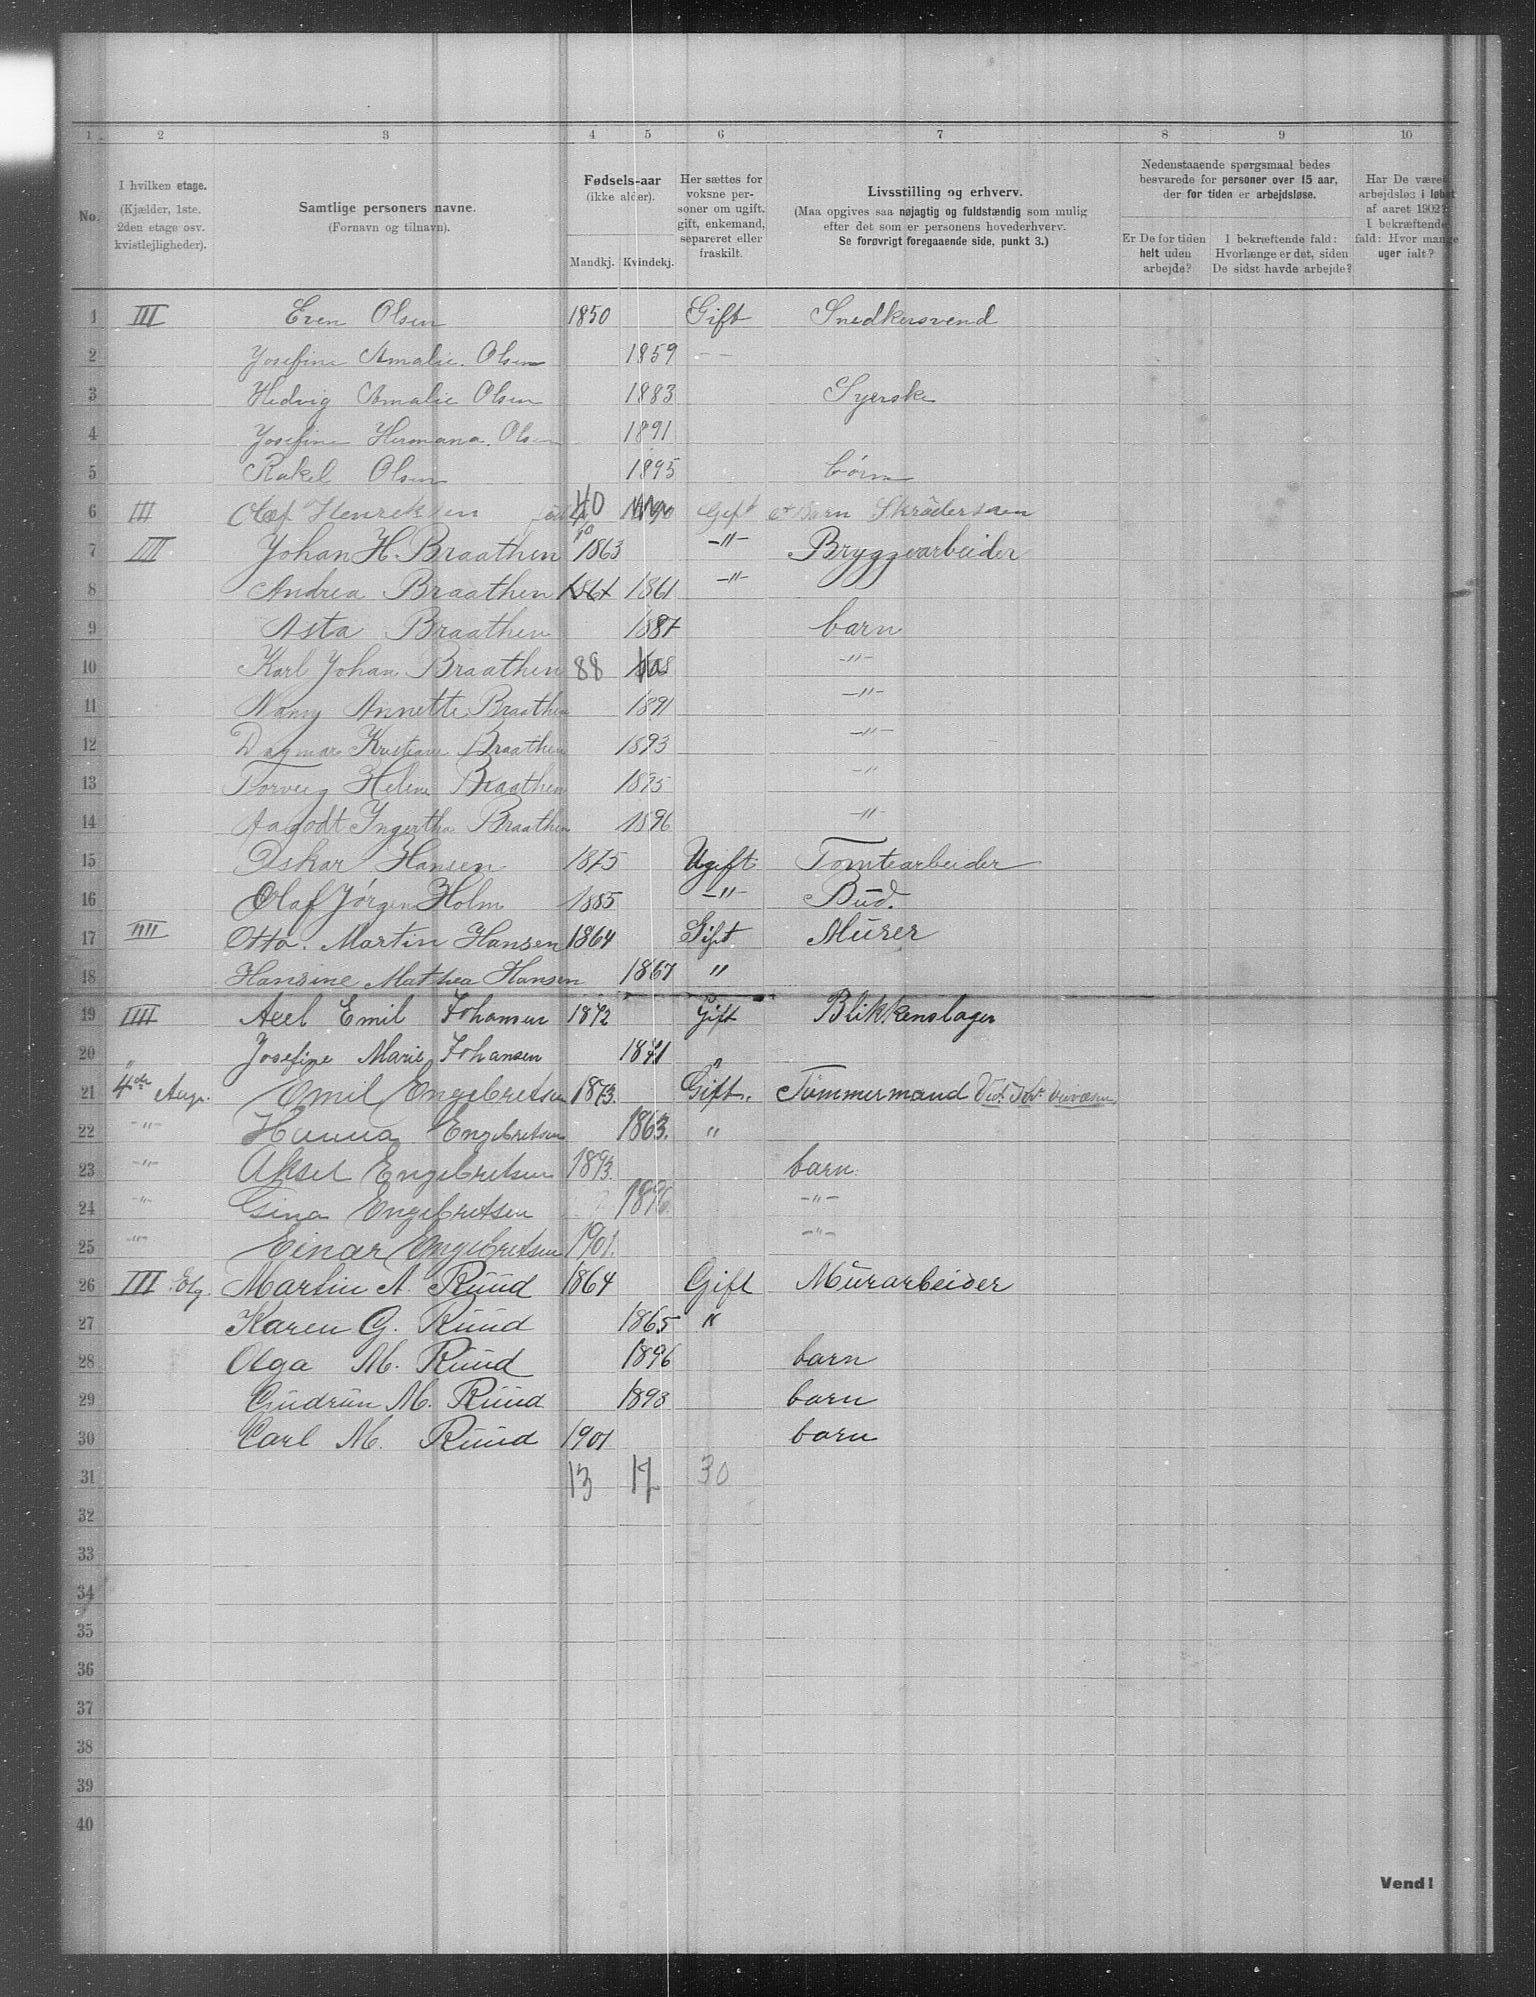 1 2 3 4 5 6 7 8 9 10
No.
I hvilken etage.
(Kjælder, 1ste.
2den etage osv.
kvistlejligheder).
Samtlige personers navne.
(Fornavn og tilnavn).
Fødsels-aar
(ikke alder).
Mandkj. Kvindekj.
Her sættes for
voksne per-
soner om ugift,
gift, enkemand,
separeret eller
fraskilt.
Livsstilling og erhverv.
(Maa opgives saa nøjagtig og fuldstændig som mulig
efter det som er personens hovederhverv.
Se forøvrigt foregaaende side, punkt 3.)
Nedenstaaende spørgsmaal bedes
besvarede for personer over 15 aar,
der for tiden er arbejdsløse.
Er De for tiden
helt uden
arbejde?
I bekræftende fald:
Hvorlænge er det, siden
De sidst havde arbejde?
Har De været
arbejdsløs i løbet
af aaret 1902?
I bekræftende
fald: Hvor mange
uger ialt?
1 III Even Olsen 1850 Gift Snedkersvend
2 Josefine Amalie Olsen 1859 - -
3 Hedvig Amalie Olsen 1883 Syerske
4 Josefine Hermana Olsen 1891
5 Rakel Olsen 1895 børn
6 III Olaf Henriksen 40 Gift Barn Skrædersven
7 IIII Johan H. Braathen 1863 -"- Bryggearbeider
8 Andrea Braathen 1861 1861 -"-
9 Asta Braathen 1887 barn
10 Karl Johan Braathen 88 -"-
11 Nany Annette Braathen 1891 -"-
12 Dagmar Kristiane Braathen 1893 -"-
13 Torveig Helene Braathen 1895 -"-
14 Aagodt Ingertha Braathen 1896 -"-
15 Oskar Hansen 1875 Ugift Tomtearbeider
16 Olaf Jørgen Holm 1885 -"- Bud.
17 IIII Otto. Martin Hansen 1864 Gift Murer
18 Hansine Mathea Hansen 1867 "
19 IIII Axel Emil Johansen 1872 Gift Blikkenslager
20 " Josefine Marie Johansen 1871 "
21 4de Emil Engebretsen 1873. Gift. Tømmermand
22 -"- Hanna Engebretsen 1863. "
23 -"- Aksel Engebretsen 1893. barn.
24 -"- Gina Engebretsen 1896. -"-
25 -"- Einar Engebretsen 1901. -"-
26 III Etg. Martin A. Ruud 1864 Gift Murarbeider
27 Karen G. Ruud 1865 "
28 Olga M. Ruud 1896 barn
29 Gudrun M. Ruud 1898 barn
30 Carl M. Ruud 1901 barn
31 13 17 30
32
33
34
35
36
37
38
39
40
Vend!